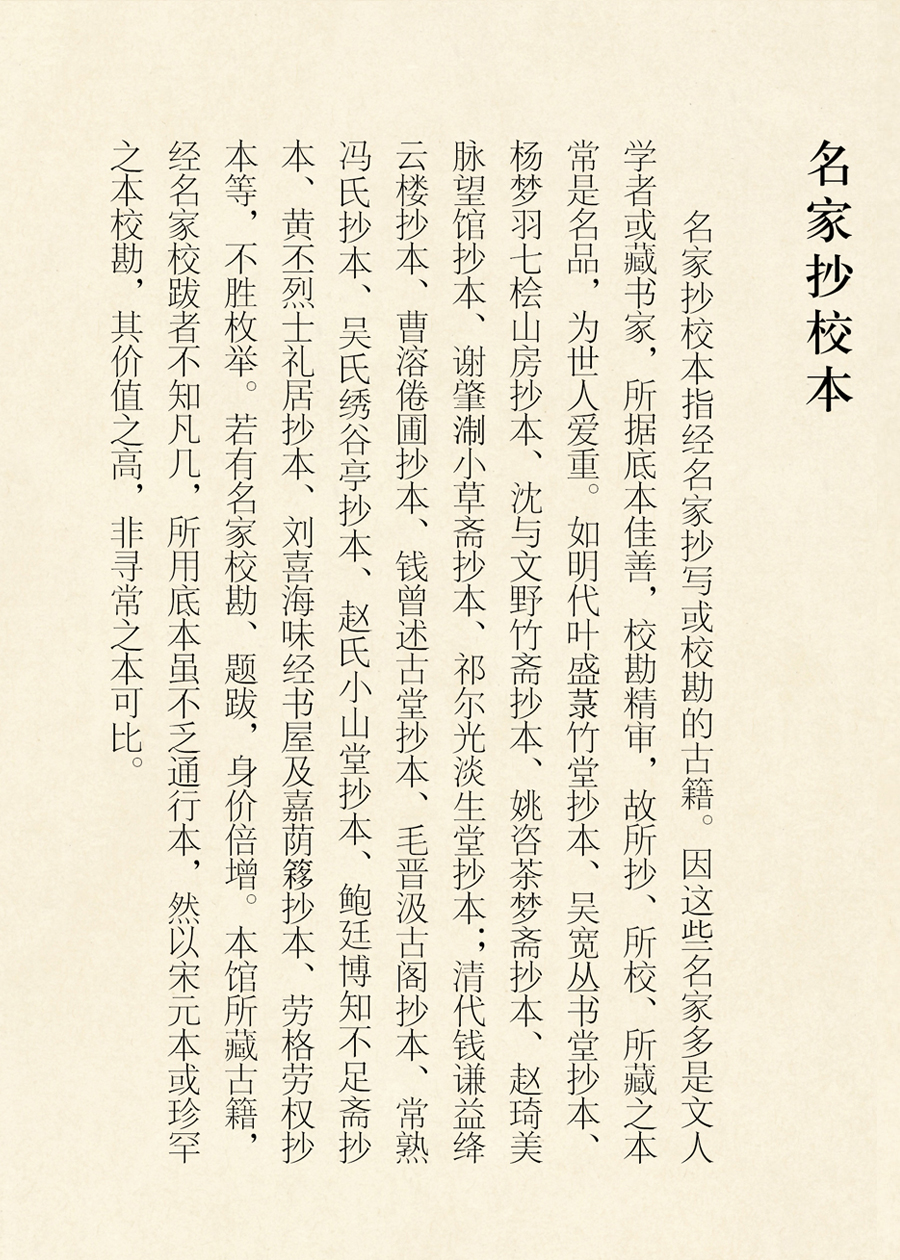 名家抄校本
名家抄校本指经名家抄写或校勘的古籍。因这些名家多是文人
学者或藏书家，所据底本佳善，校勘精审，故所抄、所校、所藏之本
常是名品，为世人爱重。如明代叶盛菉竹堂抄本、吴宽丛书堂抄本、
杨梦羽七桧山房抄本、沈与文野竹斋抄本、姚咨茶梦斋抄本、赵琦美
脉望馆抄本、谢肇淛小草斋抄本、祁尔光淡生堂抄本；清代钱谦益绛
云楼抄本、曹溶倦圃抄本、钱曾述古堂抄本、毛晋汲古阁抄本、常熟
冯氏抄本、吴氏绣谷亭抄本、赵氏小山堂抄本、鲍廷博知不足斋抄
本、黄丕烈士礼居抄本、刘喜海味经书屋及嘉荫簃抄本、劳格劳权抄
本等，不胜枚举。若有名家校勘、题跋，身价倍增。本馆所藏古籍，
经名家校跋者不知凡几，所用底本虽不乏通行本，然以宋元本或珍罕
之本校勘，其价值之高，非寻常之本可比。